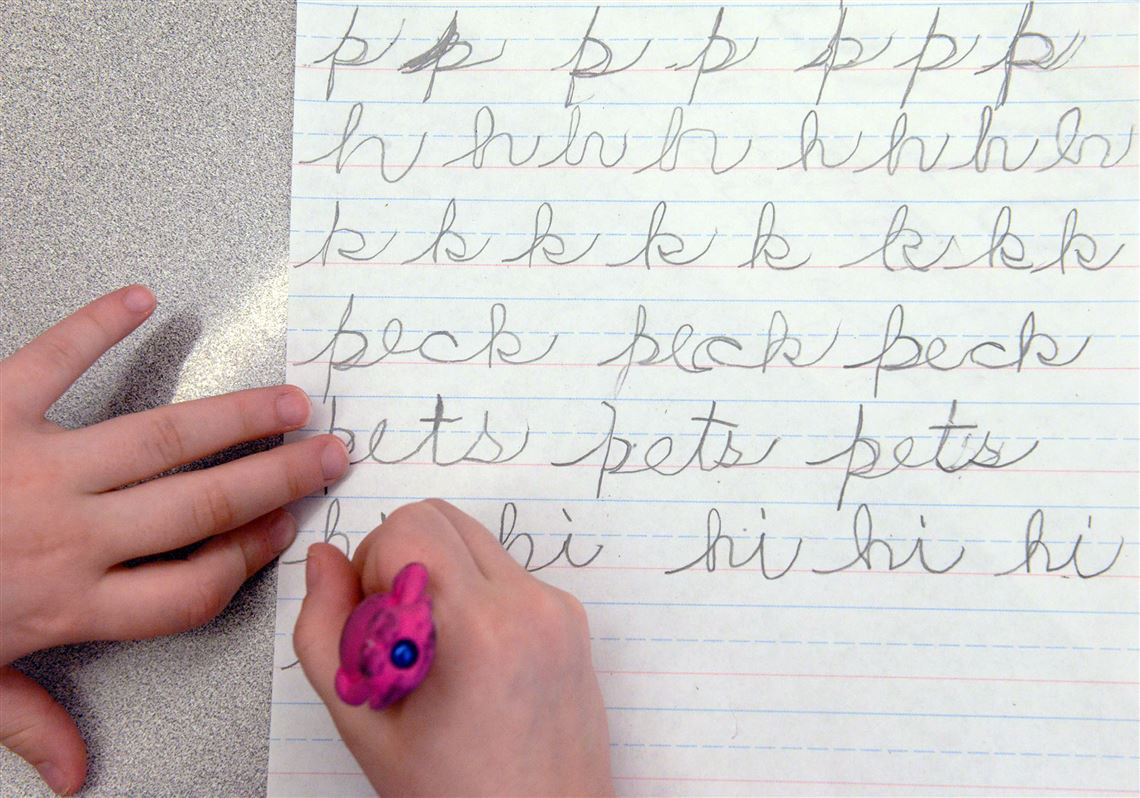 p p p p p p p
h h h h h h h h
k k k k k k k k
peck peck peck
pets pets pets
hi hi hi hi hi